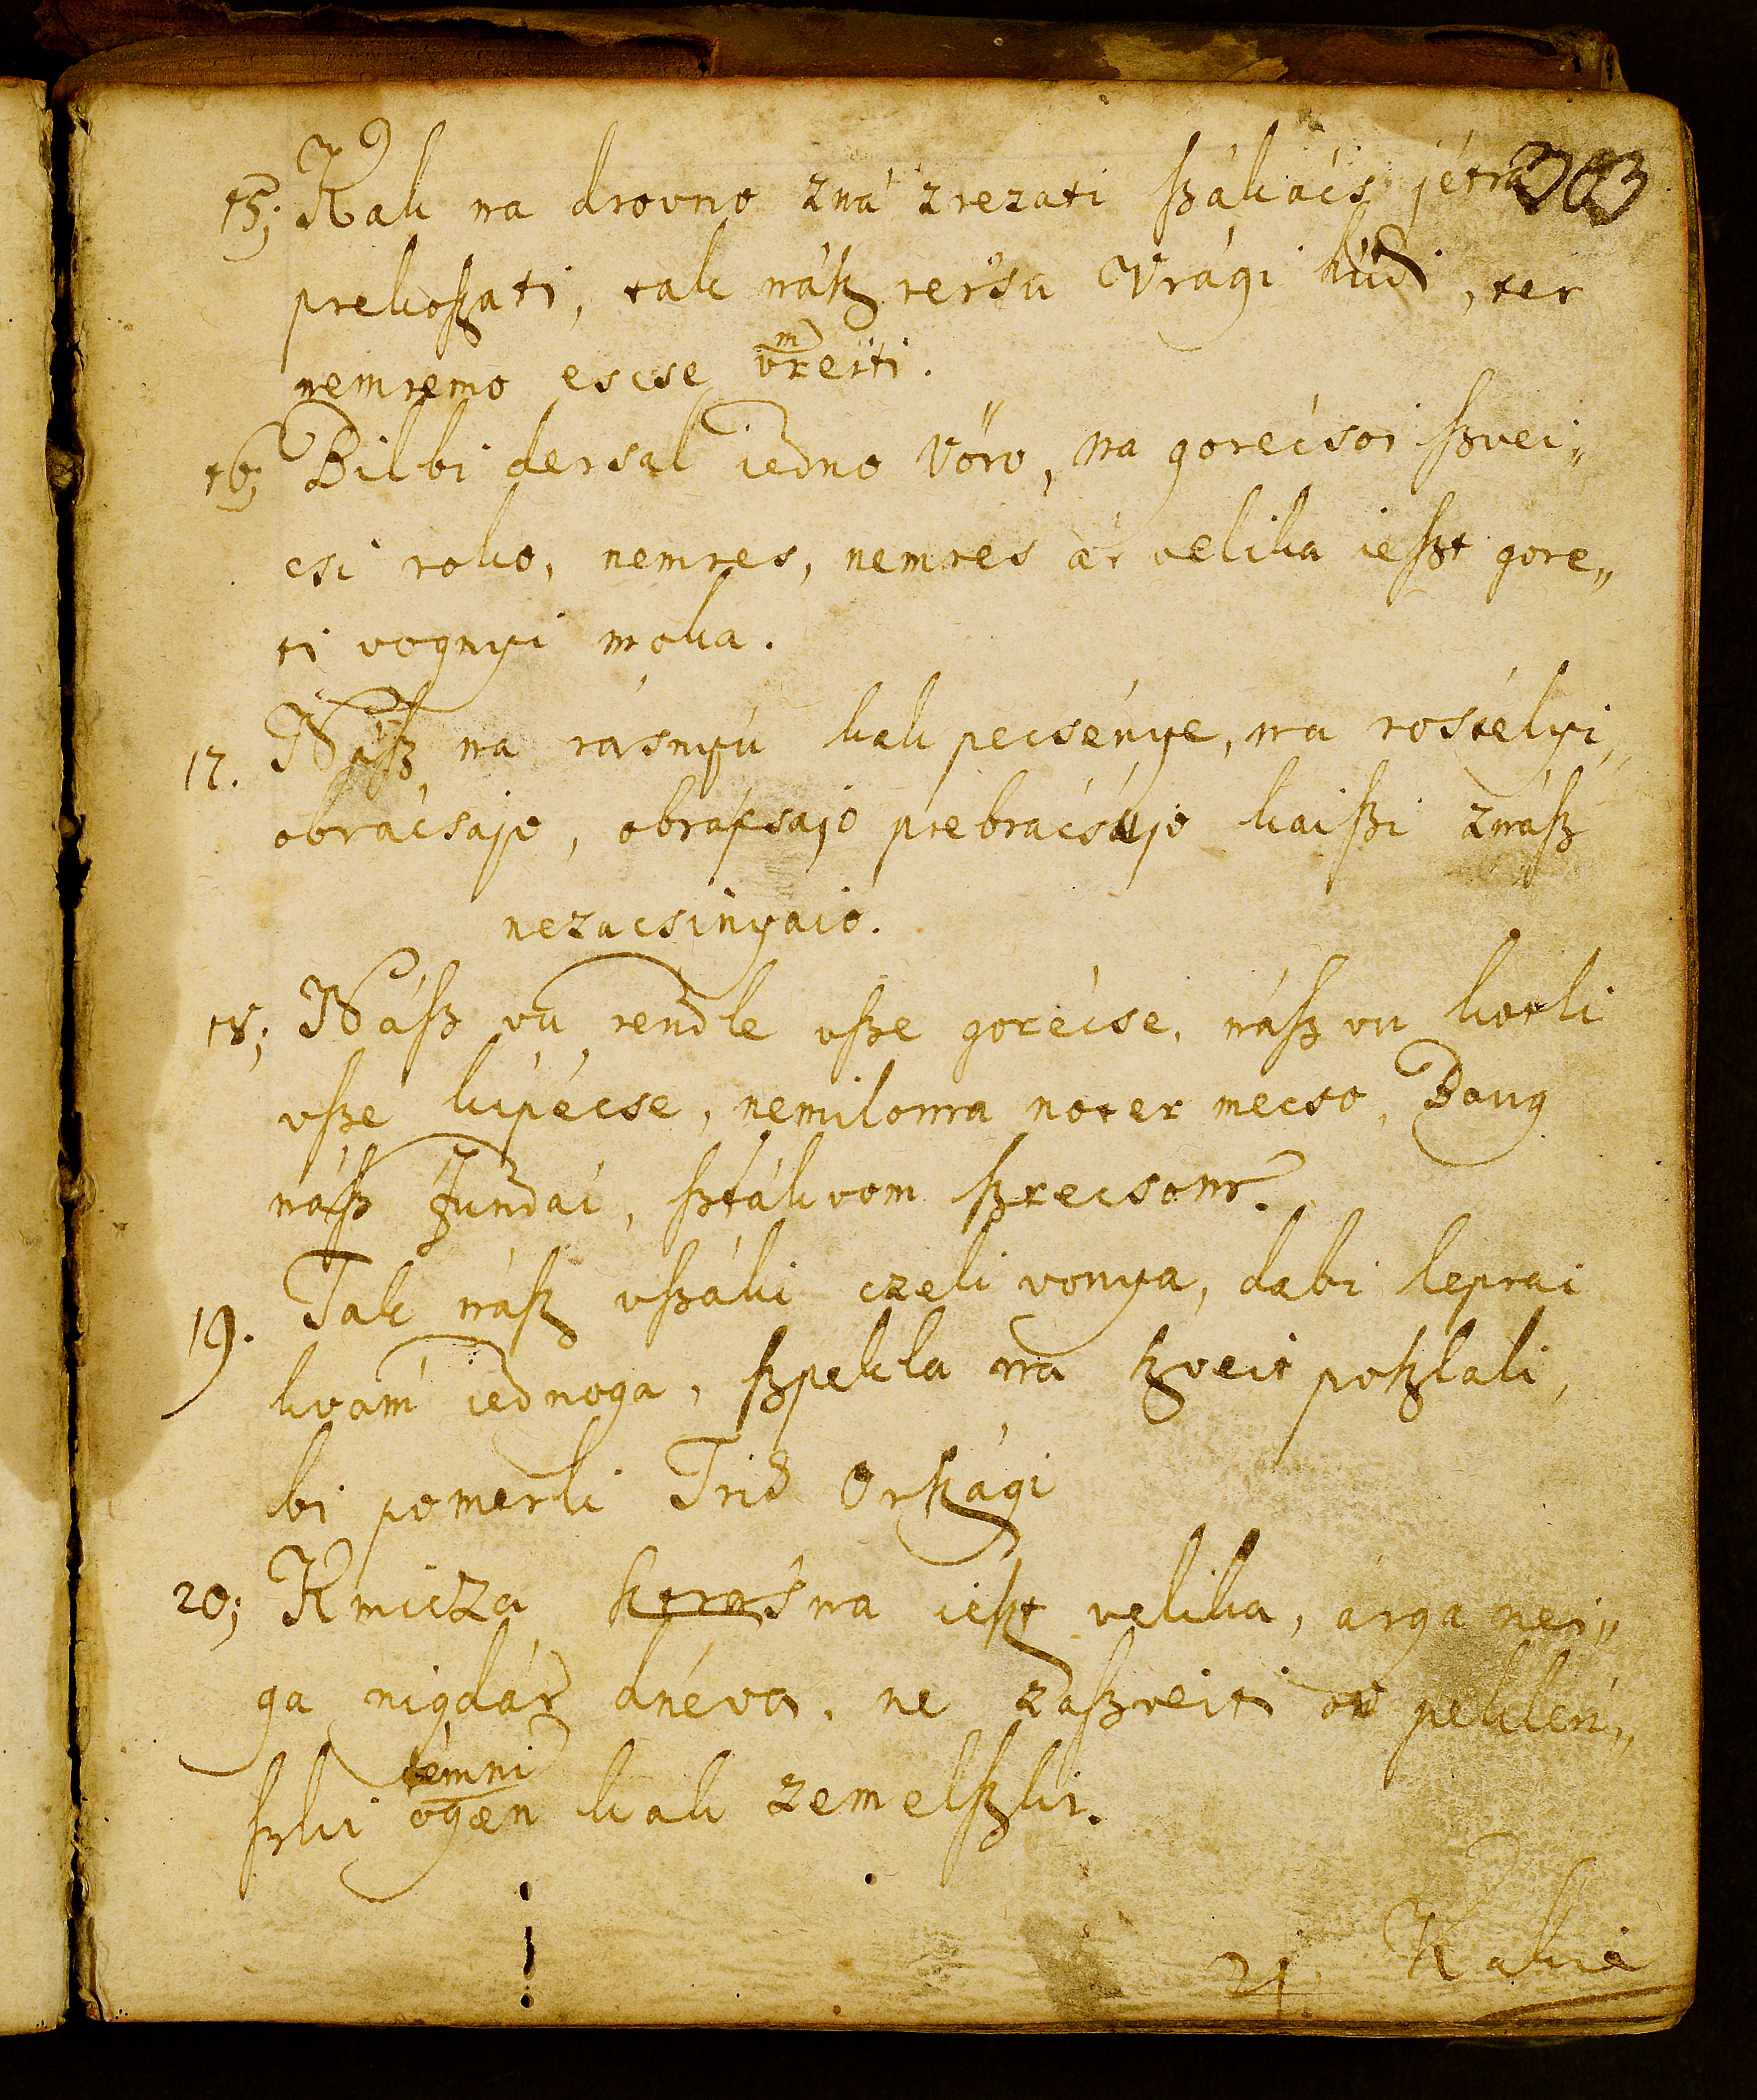 303
15; Kak na drovno zná zrezati szákács jétra
prekoszati, tak nász rersu Vrági húdi, ter
nemremo escse vreiti. m
16; Bilbi dersal iedno Vöro, na gorécsoi szvei„
csi roko, nemres, nemres ár velika ieszt gore„
ti vognyi moka.
17. Nász na rásnyú kak pecsénye, na rostélyi,,
obrácsajo, obracsajo prebrácsujo kaiszi znász
nezacsinyaio.
18; Nász vu rendle vsze gorécse, nász vu kotli
vsze kipécse, nemilowa noter mecso, Doug
nász Zundai, sztákvom szrecsom.
19. Tak nász vszáki czeli vonya, dabi leprai
kvám iednoga, szpekla na szveit poszlali,
bi pomerli Trid Országi
20; Kmicza strasna ieszt velika, arga nei„
ga nigdár dnéva, ne zaszveiti ov peklén„
szki témni ogen kak zemelszki.
21. Kakie